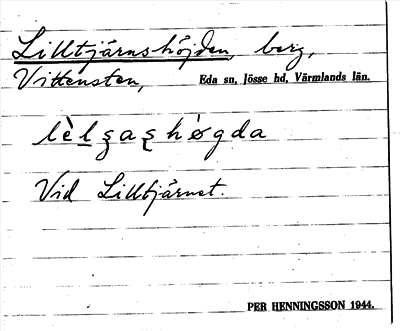 Lilltjärnshöjden, berg,
Vittensten, Eda sn, Jösse hd, Värmlands län.
Vid Lilltjärnet.
PER HENNINGSSON 1944.